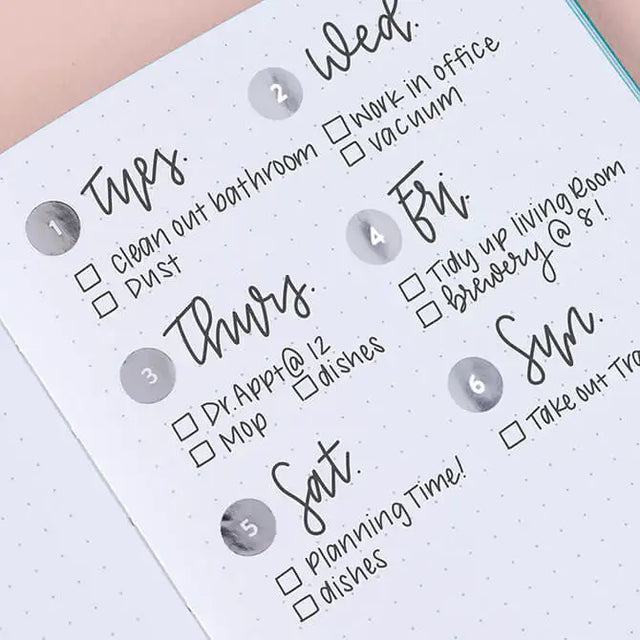 1 Tues.
Clean out bathroom
Dust
2 Wed.
Work in office
vacuum
3 Thurs.
Dr. Appt @ 12
Mop
dishes
4 Fri.
Tidy up living room
brewery @ 8!
5 Sat.
Planning Time!
dishes
6 Sun.
Take out